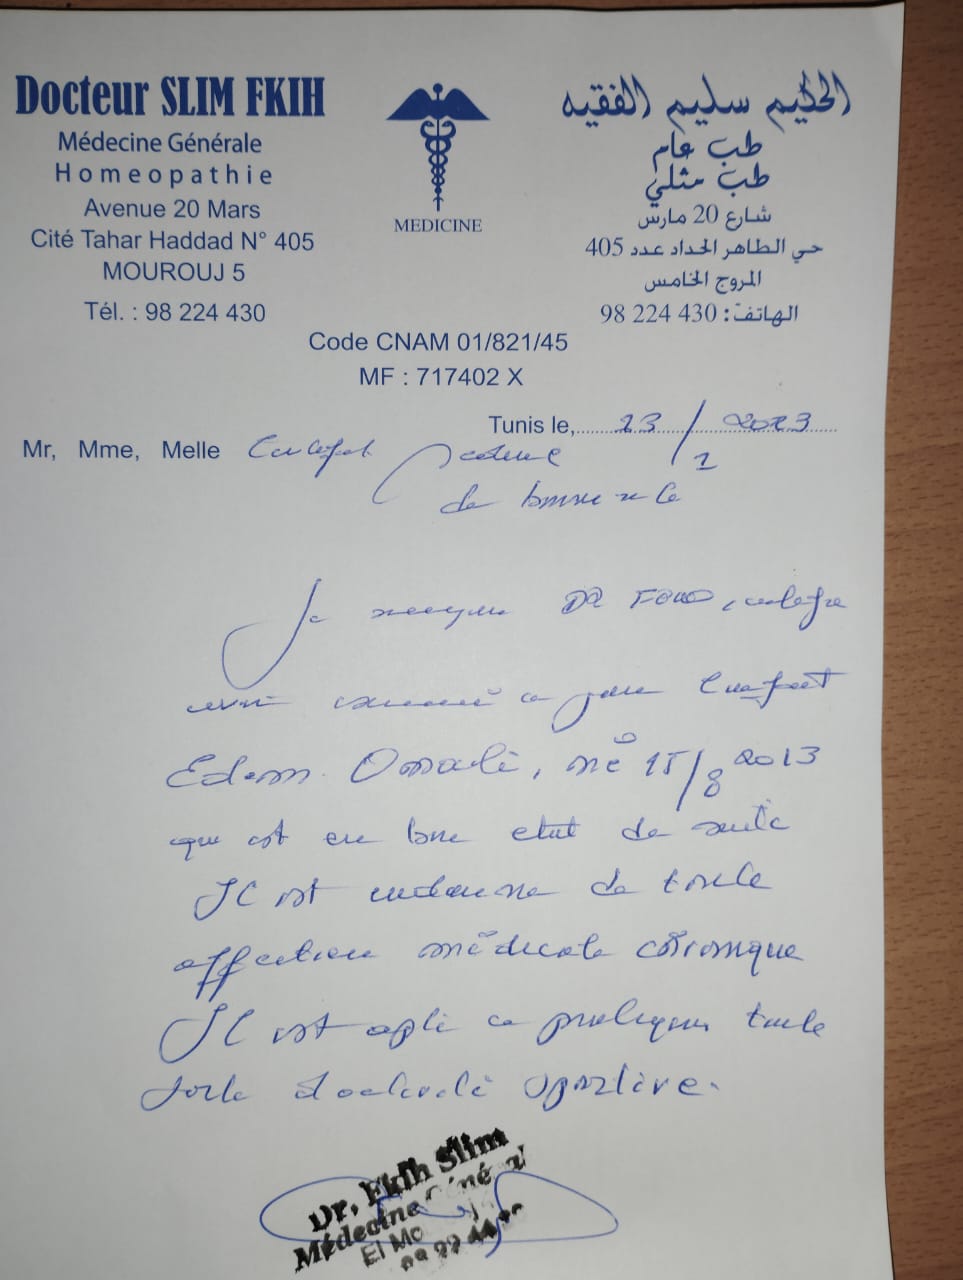 Docteur SLIM FKIH
Médecine Générale
Homeopathie
Avenue 20 Mars
Cité Tahar Haddad N° 405
MOUROUJ 5
Tél. : 98 224 430
MEDICINE
الحكيم سليم الفقيه
طب عام
طب مثلي
شارع 20 مارس
حي الطاهر الحداد عدد 405
المروج الخامس
الهاتف: 430 224 98
Code CNAM 01/821/45
MF : 717402 X
Tunis le, 23/1 2023
Mr, Mme, Melle Certificat médical
de bonne santé
Je soussigné DR FKIH, certifie
avoir examiné ce jour l'enfant
Edem, né 15/8 2013
qui est en bon etat de santé
Il est indemne de toute
affection médicale chronique
Il est apte a pratiquer toute
sorte d'activité sportive.
Dr. Fkih Slim
Médecine Général
El Mo